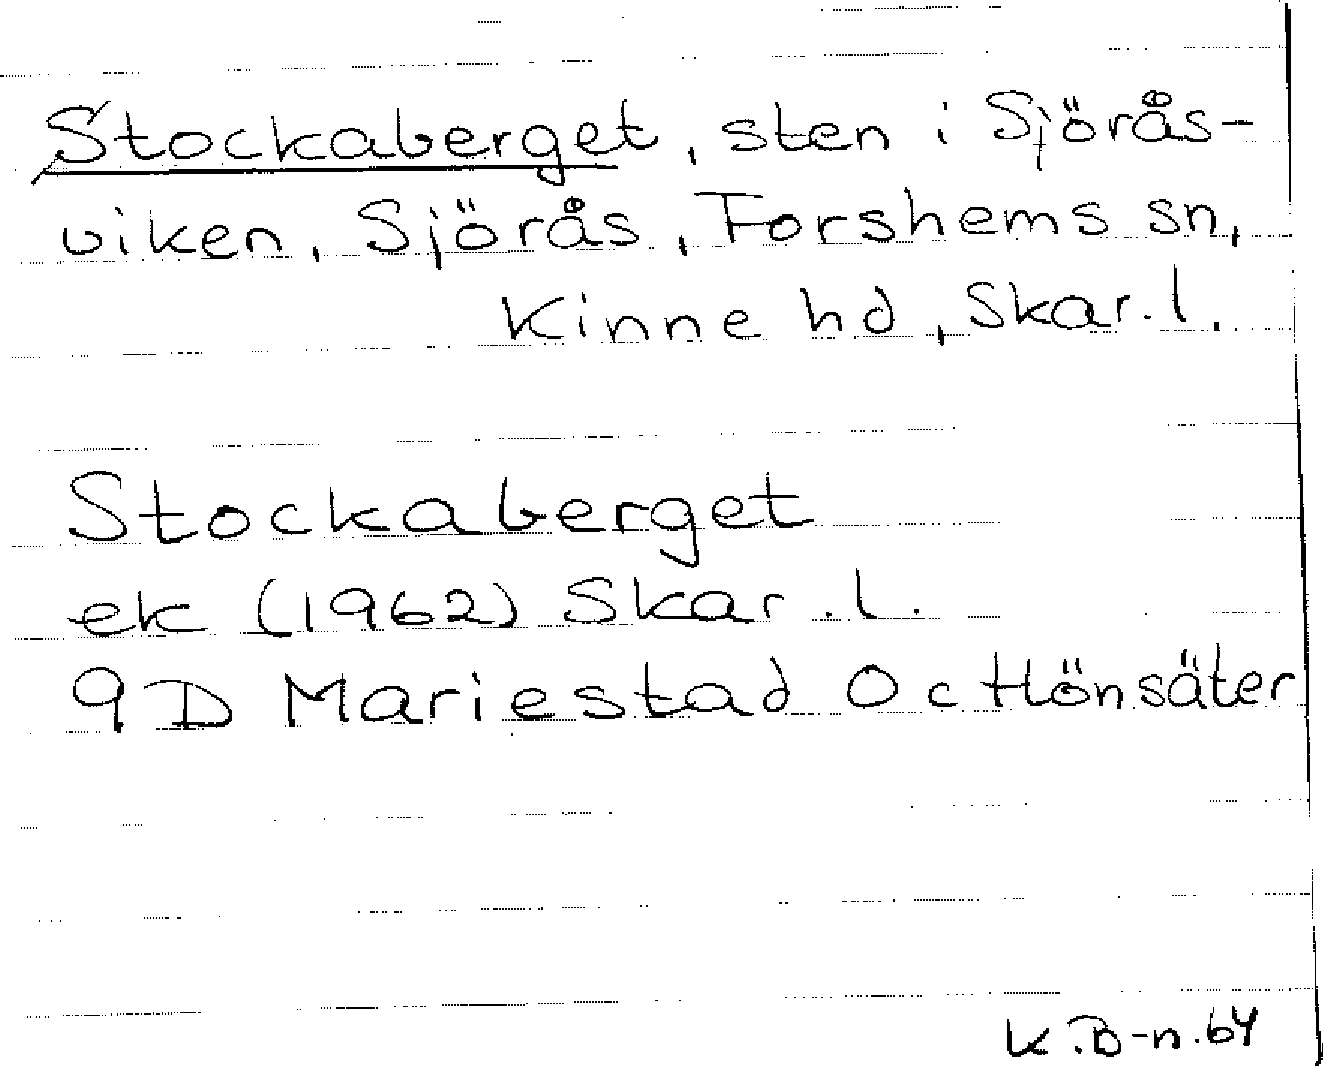 Stockaberget, sten i Sjörås-
viken, Sjörås, Forshems sn,
Kinne hd, Skar. l.
Stockaberget
ek (1962) Skar. l.
9D Mariestad 0c Hönsäter
K.B-n.64